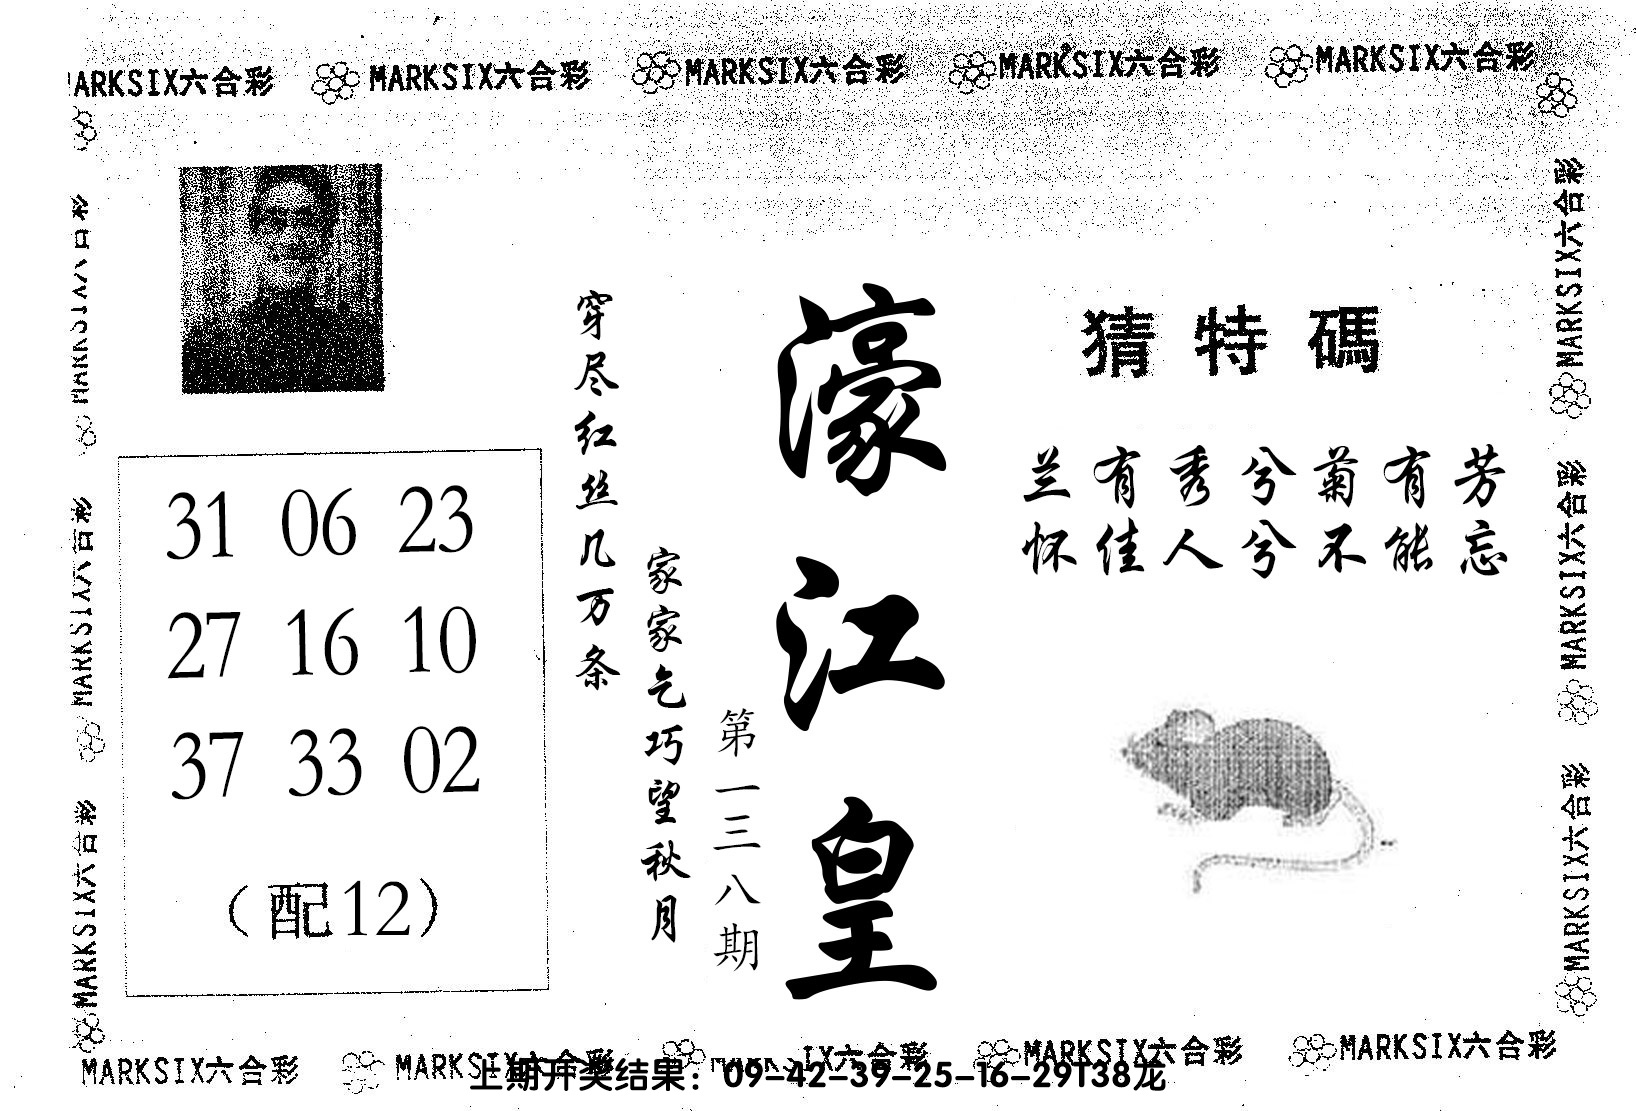 MARKSIX六合彩 MARKSIX六合彩 MARKSIX六合彩 MARKSIX六合彩
猜特碼
兰有秀兮菊有芳
怀佳人兮不能忘
濠江皇
第一三八期
家家乞巧望秋月
穿尽红丝几万条
31 06 23
27 16 10
37 33 02
（配12）
MARKSIX六合彩
MARKSIX六合彩
MARKSIX六合彩
MARKSIX六合彩
MARKSIX六合彩
MARKSIX六合彩 MARKSIX六合彩 MARKSIX六合彩 MARKSIX六合彩
上期开奖结果：09-42-39-25-16-29T38龙